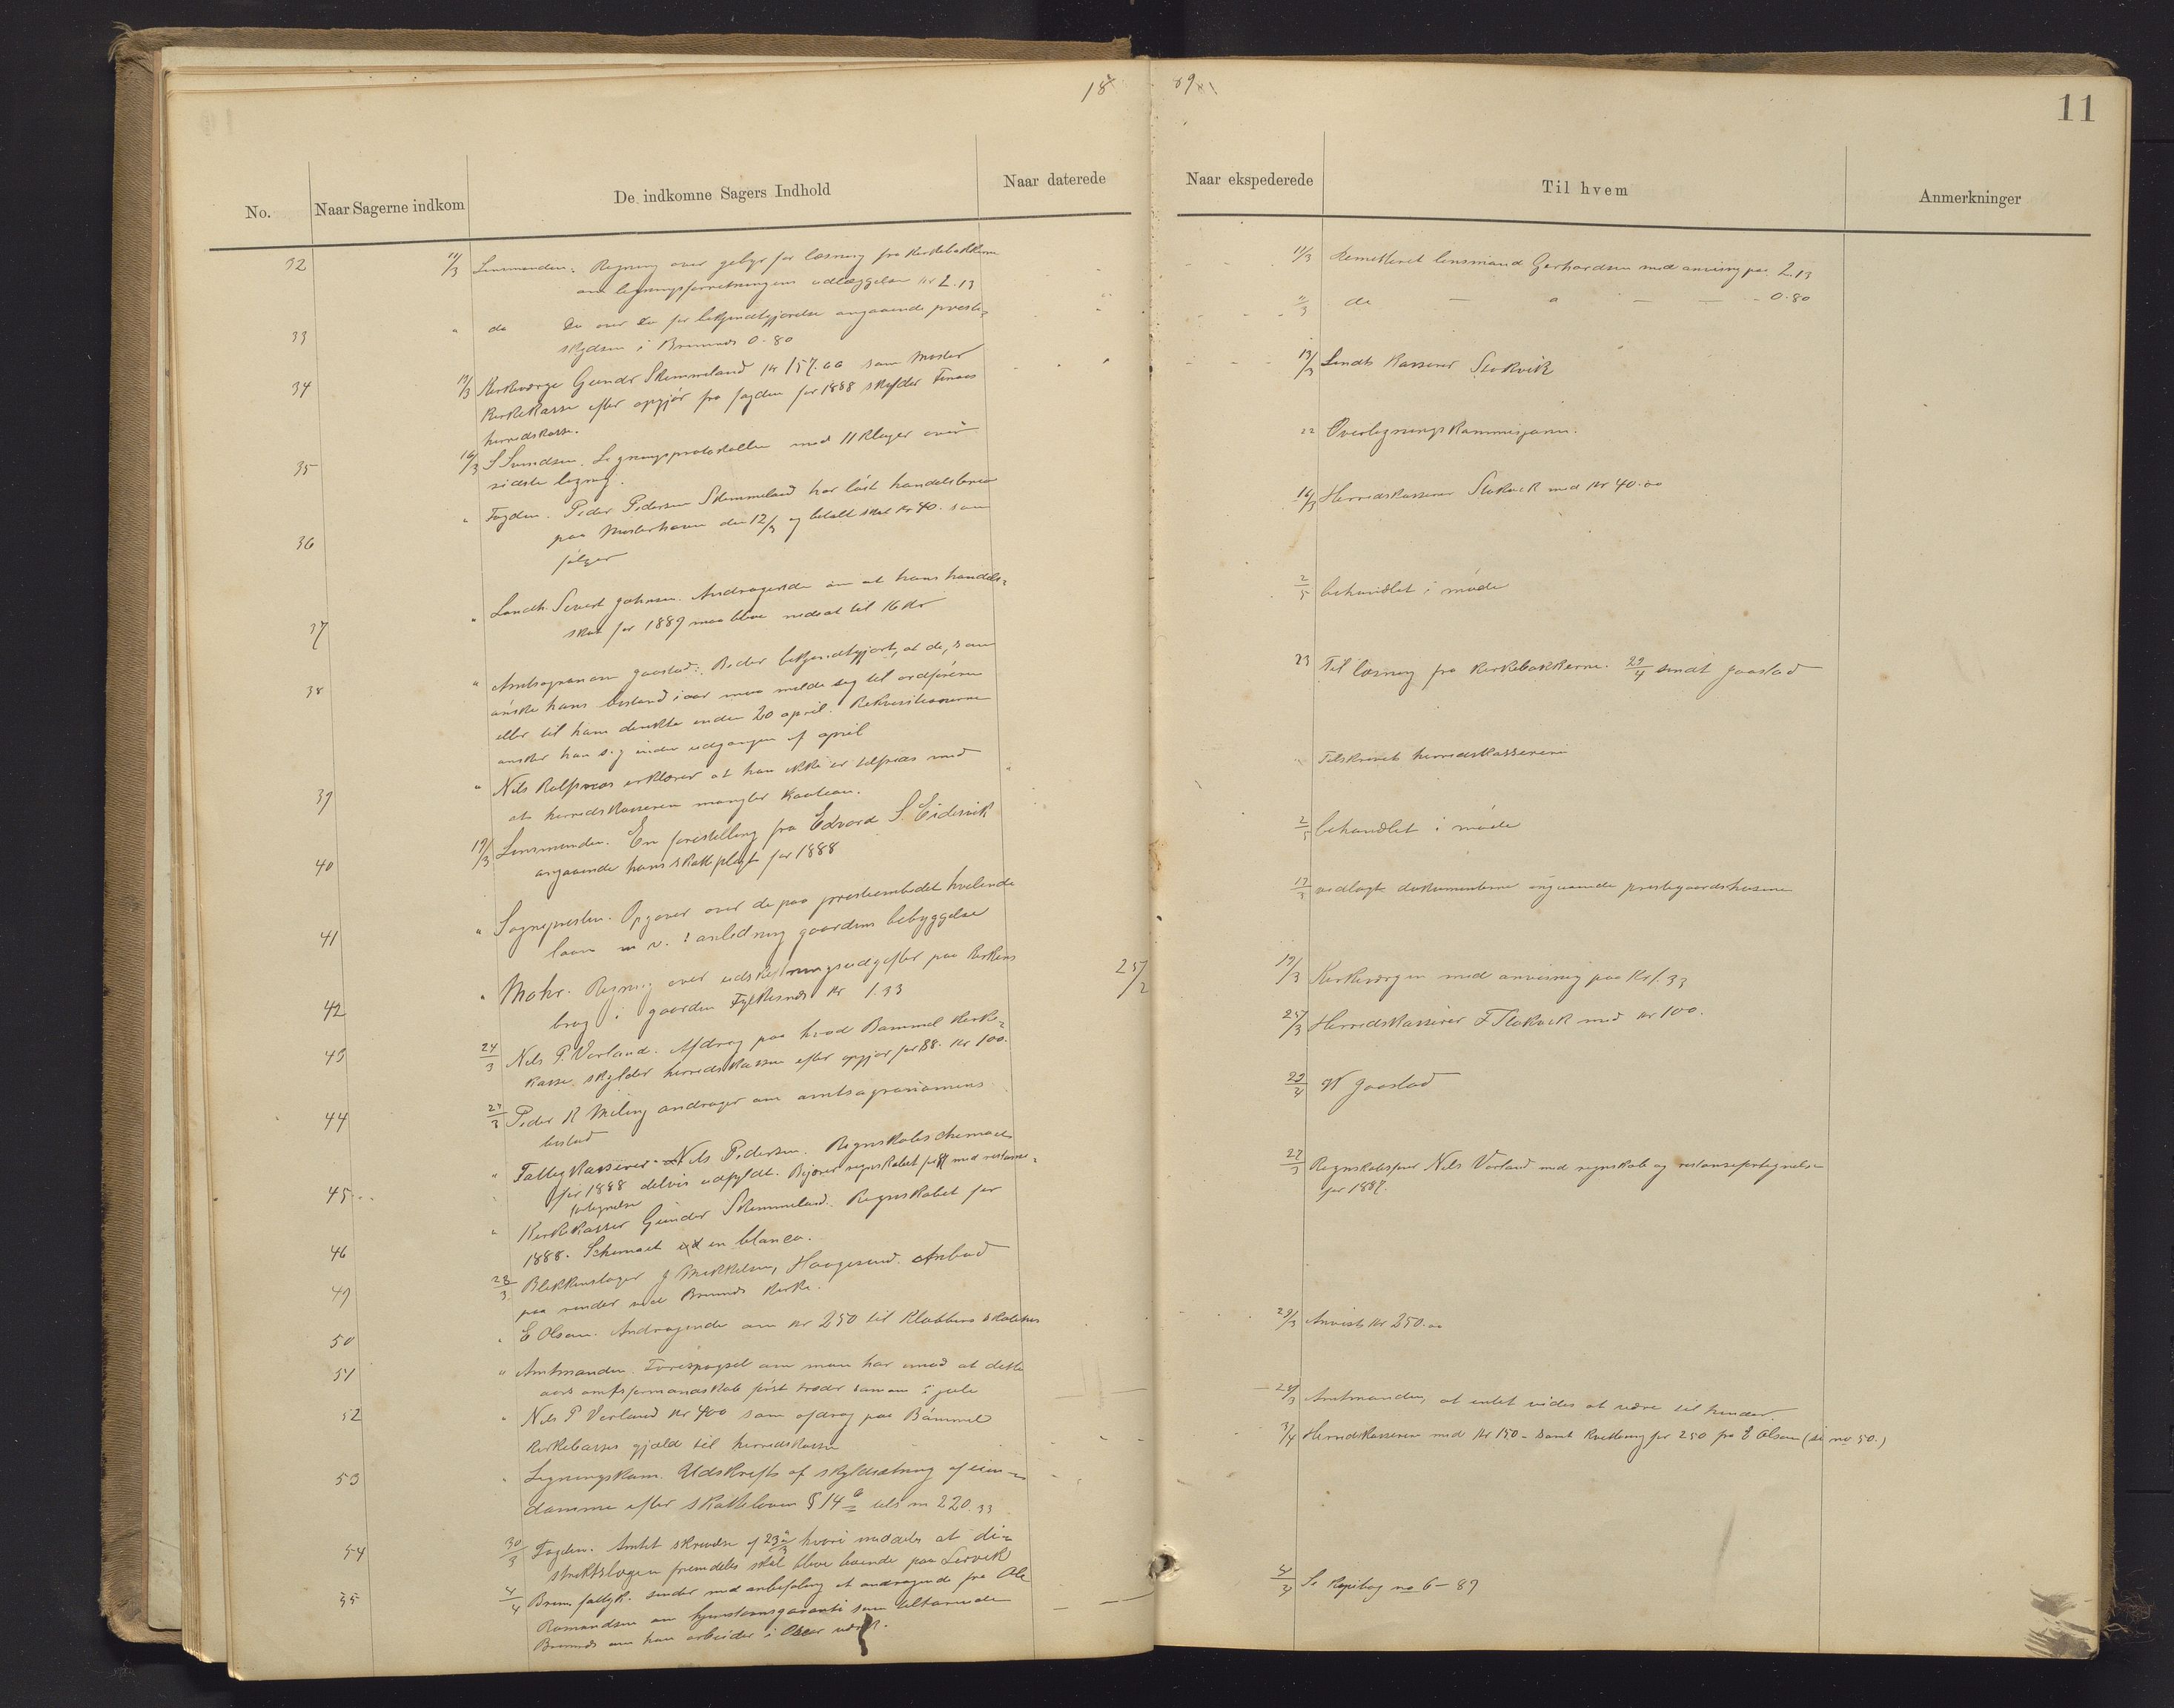 18
89
11
No.
Naar Sagerne indkom
De indkomne Sagers Indhold
Naar daterede
Naar ekspederede
Til hvem
Anmerkninger
32 11/3 Lensmanden. Regning over gebyr for læsning fra Kirkebakken
om ligningsforretningens udlæggelse kr 2.13
11/3 Remitteret lensmand Gerhardsen med anvisning paa 2.13
33 " do Do over do for bekjendtgjørelse angaaende preste-
skydsen i Bremnes 0.80
11/3 do — " — — 0.80
34 13/3 Kirkeværge Gunder Skimmeland kr 157.00 som Moster
Kirkekasse efter opgjør fra fogden for 1888 skylder Finaas
herredskasse.
13/3 Sendt Kasserer Stokvik
35 16/3 S Svendsen. Ligningsprotokollen med 11 klager over
sidste ligning.
22 Overligningskommisjonen.
36 " Fogden. Peder Pedersen Skimmeland har løst handelsbrev
paa Mosterhavn den 12/3 og betalt skat kr 40. som
følger
16/3 Herredskasserer Stokvik med kr 40.00
37 " Landh. Sivert Johnsen. Andragende om at hans handels-
skat for 1889 maa blive nedsat til 16 kr
2/5 behandlet i møde
38 " Amtsagronom Gaastad: Beder bekjendtgjort, at de, som
ønske hans bistand i aar maa melde sig til ordføreren
eller til ham direkte inden 20 april. Rekvisitionerne
ønsker han sig inden udgangen af april
23 Til læsning fra Kirkebakkerne. 29/4 sendt Gaastad
39 " Nils Rolfsnes erklærer at han ikke er tilfreds med
at herredskassereren mangler Kaution.
Tilskrevet herredskassereren
40 19/3 Lensmanden. En forestilling fra Edvard S Eidesvik
angaaende hans skattepligt for 1888
2/5 behandlet i møde
41 " Sognepresten. Opgaver over de paa presteembedet hvilende
laan m v. i anledning gaardens bebyggelse
17/3 vedlagt dokumenterne angaaende prestegaardshusene
42 " Mohr. Regning over udskiftningsudgifter paa Kirkens
brug i gaarden Fylkesnes kr 1.33
25/2
19/3 Kirkeværgen med anvisning paa Kr 1.33
43 24/3 Nils P. Vorland. Afdrag paa hvad Bømmel Kirke-
kasse skylder herredskassen efter opgjør for 88. kr 100.
25/3 Herredskasserer F Stokvik med kr 100.
44 27/3 Peder K Meling andrager om amtsagronomens
bistad
29/4 Gaastad
45 " Fattigkasserer Nils Pedersen. Regnskabsschemaet
for 1888 delvis udfyldt. med restance-
fortegnelse
27/3 Regnskabsfører Nils Vorland med regnskab og restancefortegnelse
for 1887.
46 " Kirkekasser Gunder Skimmeland. Regnskabet for
1888. Schemaet in blanco.
49 28/3 Blikkenslager J Mikkelsen, Haugesund. Anbud
paa render ved Bremnes Kirke.
50 " E Olsen. Andragende om kr 250 til Klubbens skolehus
29/3 Anvist kr 250.00
51 " Amtmanden. Forespørgsel om man har imod at dette
aars amtsformandskab først træder sammen i juli
29/3 Amtmanden, at intet vides at være til hinder.
52 " Nils P Vorland kr 400 som afdrag paa Bømmel
Kirkekasses gjæld til herredskassen
3/4 Herredskassereren med kr 150 – samt kvittering for 250 fra E Olsen (se no 50.)
53 " Ligningskom. Udskrift af skyldsætning af eien-
domme efter skatteloven § 14 6 220.33
54 30/3 Fogden. Amtets skrivelse af 23/3 hvori meddeles at di-
striktslægen fremdeles skal blive boende paa Lervik
35 4/4 Brem. fattigk. sender med anbefaling et andragende fra Ole
Romundsen om hjemstavnsgaranti som tilkommende
Bremnes om han arbeider i Oscar værk.
4/4 Se Kopibog no 6 – 89